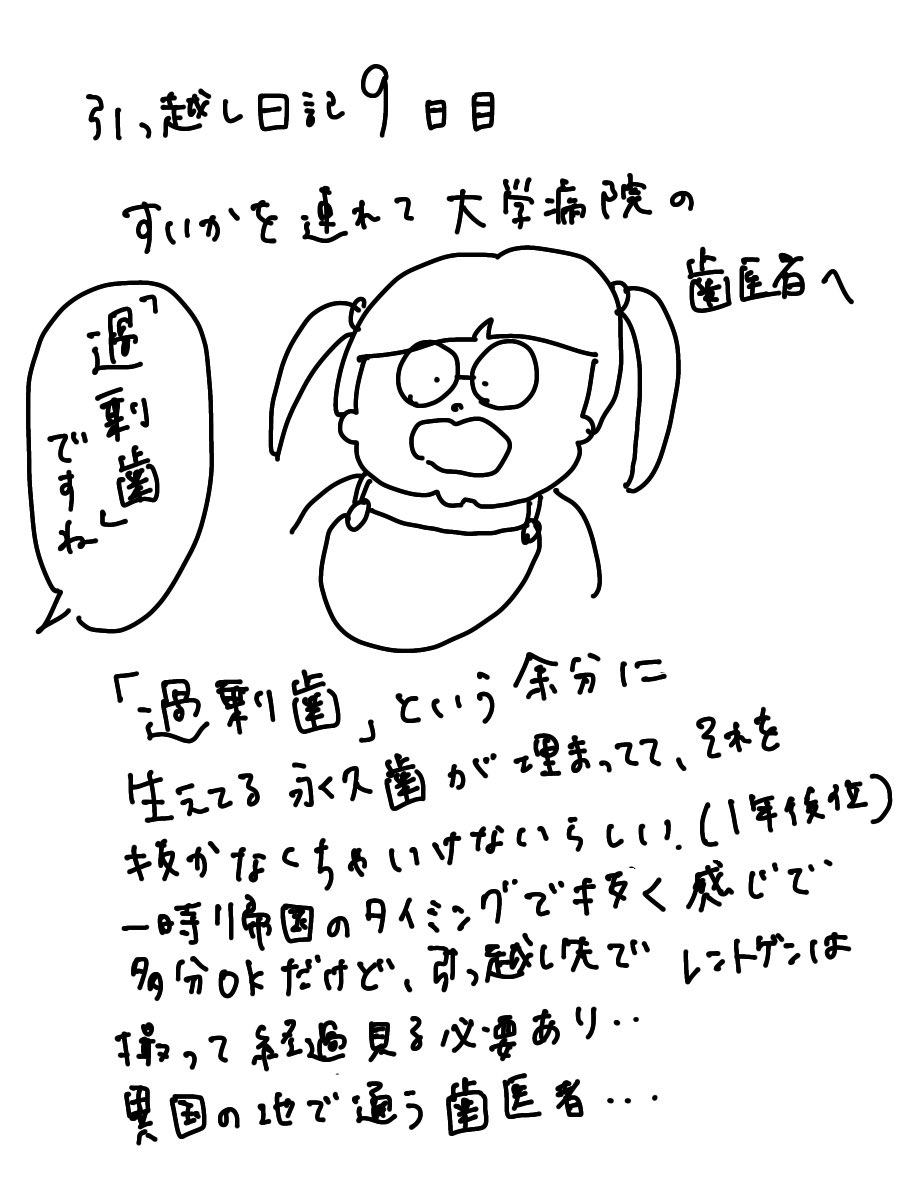 引っ越し日記9日目
すいかを連れて大学病院の
歯医者へ
「過剰歯」
ですね
「過剰歯」という余分に
生えてる永久歯が埋まってて、それを
抜かなくちゃいけないらしい.(1年後位)
一時帰国のタイミングで抜く感じで
多分OKだけど、引っ越し先でレントゲンは
撮って経過見る必要あり..
異国の地で通う歯医者...